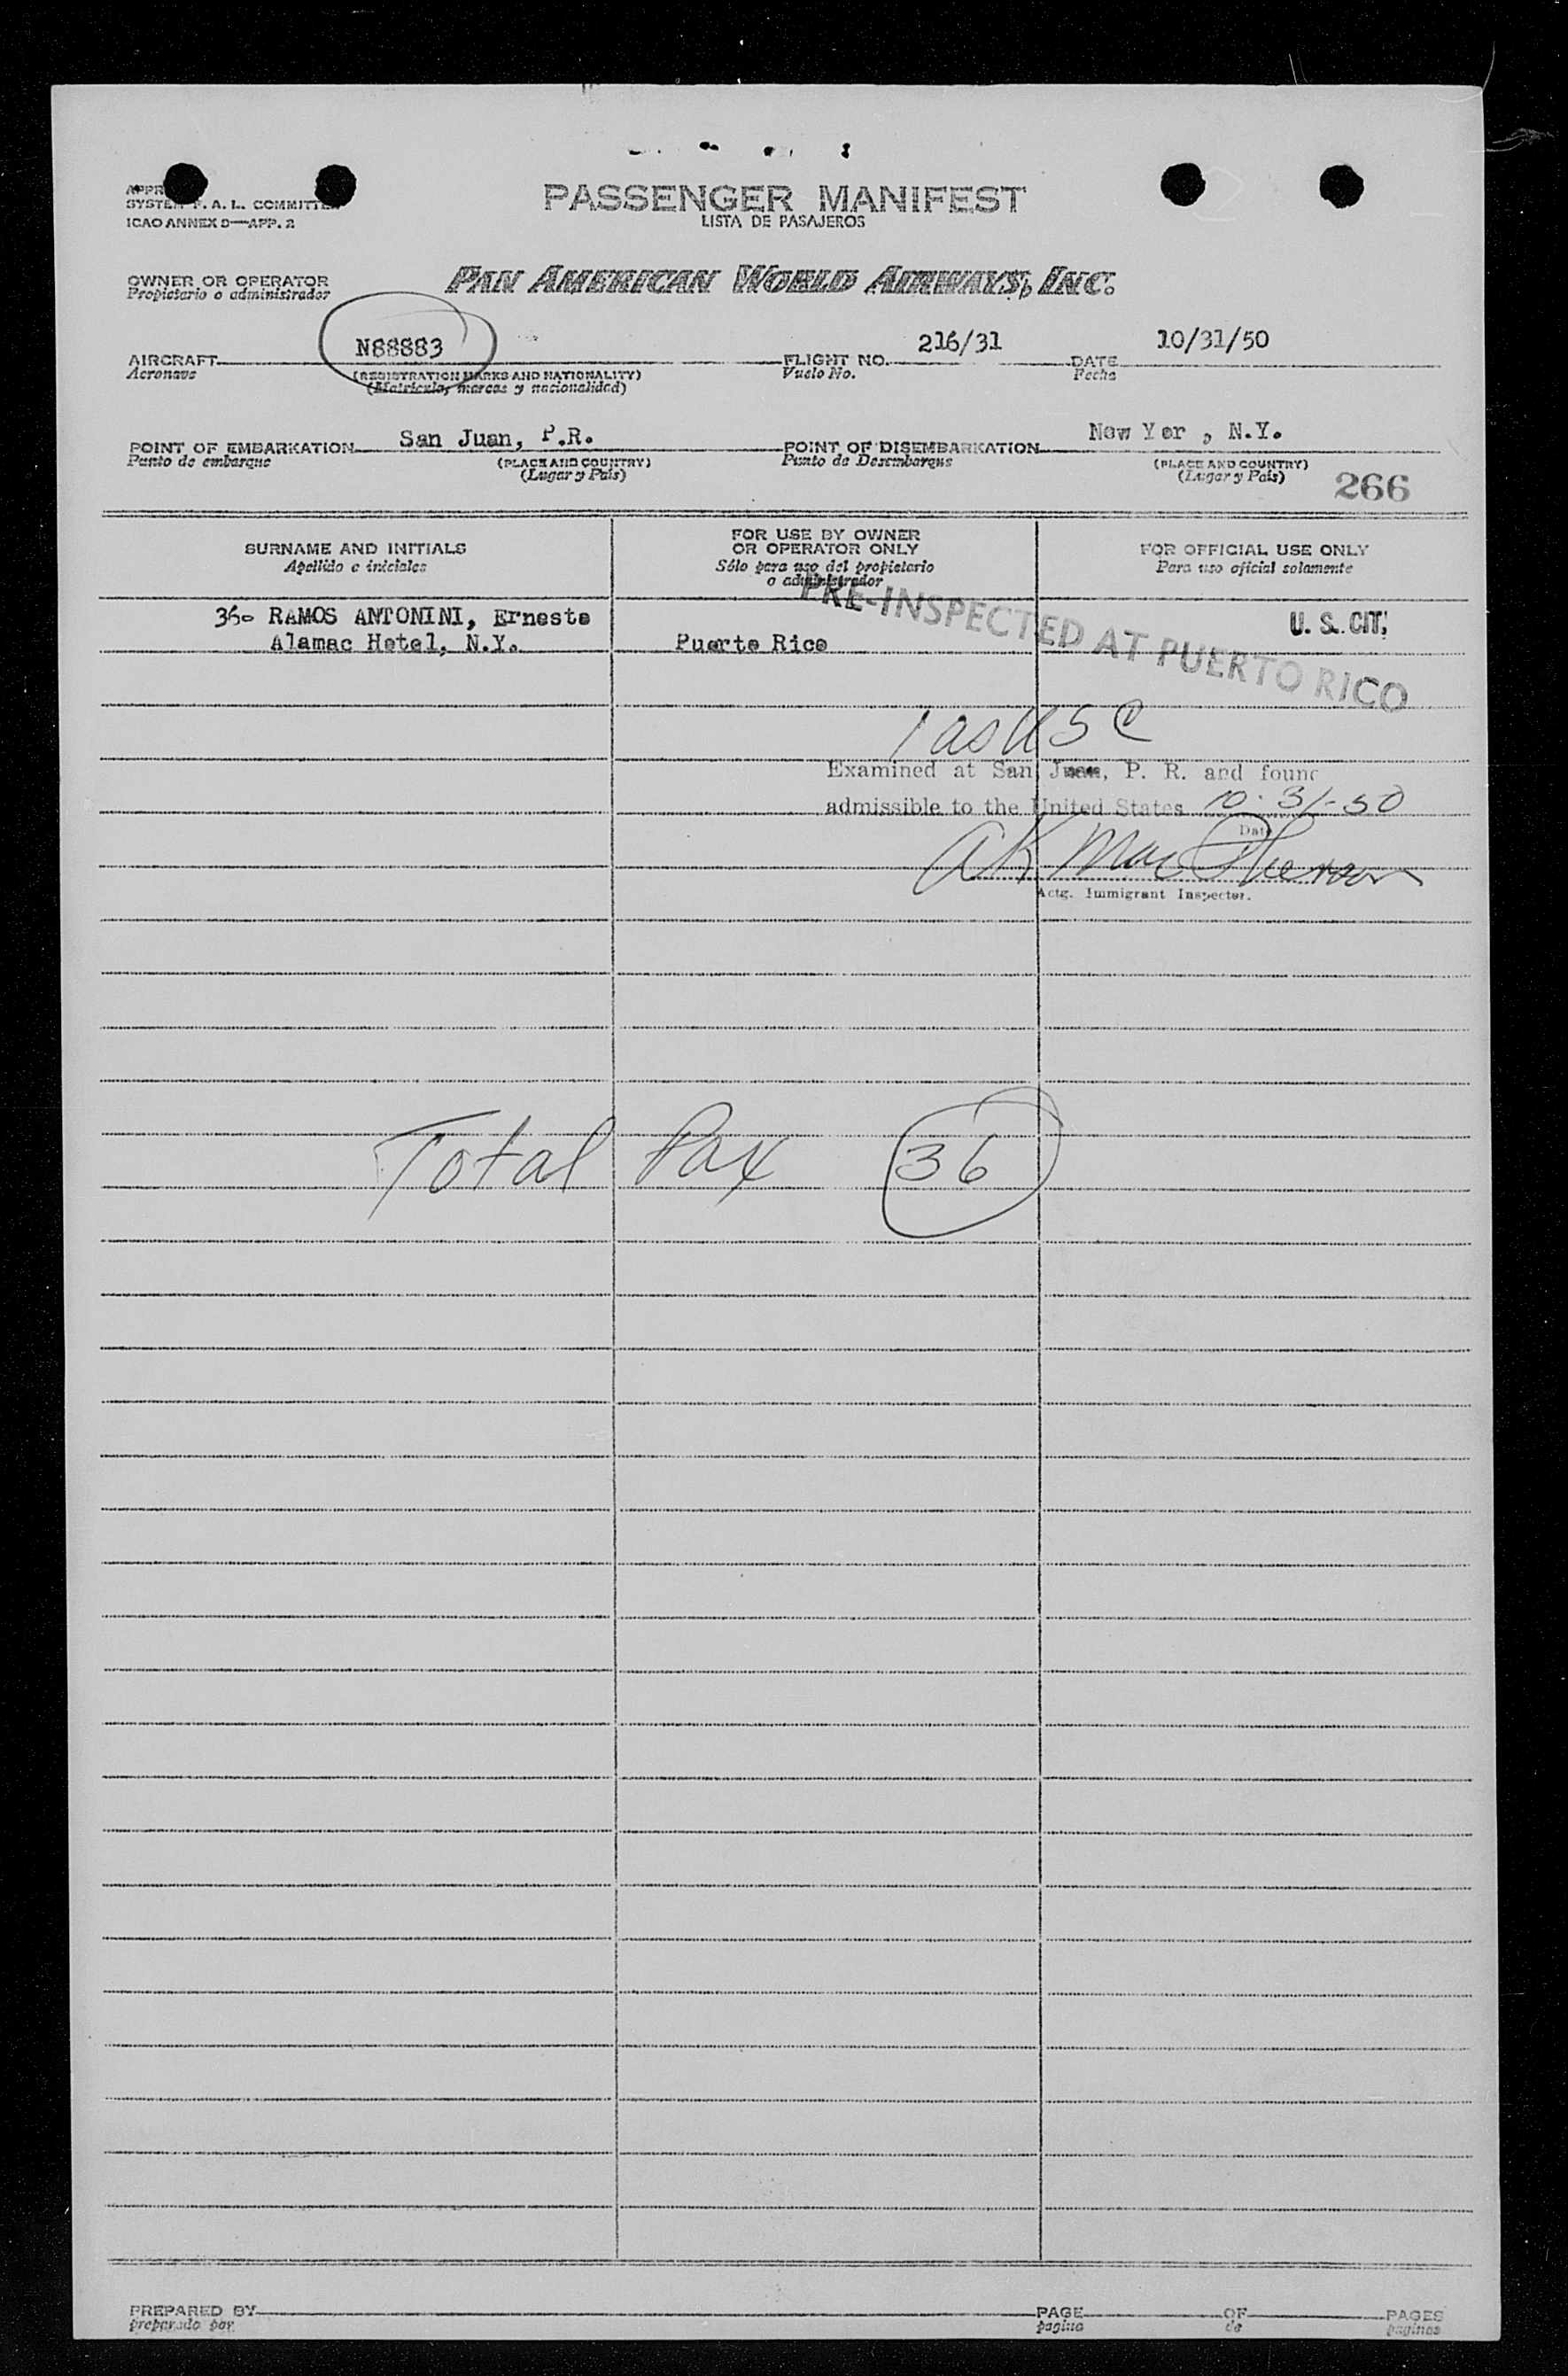 PASSENGER MANIFEST
LISTA DE PASAJEROS
SYSTEM F. A. L. COMMITTEE
ICAO ANNEX 9—APP. 2
OWNER OR OPERATOR
Propietario o administrador
PAN AMERICAN WORLD AIRWAYS, INC.
AIRCRAFT N88883 FLIGHT NO. 216/31 DATE 10/31/50
Aeronave (REGISTRATION MARKS AND NATIONALITY) Vuelo No. Fecha
(Matrícula, marcas y nacionalidad)
POINT OF EMBARKATION San Juan, P.R. POINT OF DISEMBARKATION New Yor , N.Y.
Punto de embarque (PLACE AND COUNTRY) Punto de Desembarque (PLACE AND COUNTRY)
(Lugar y País) (Lugar y País) 266
SURNAME AND INITIALS
Apellido e iniciales
FOR USE BY OWNER
OR OPERATOR ONLY
Sólo para uso del propietario
o administrador
FOR OFFICIAL USE ONLY
Para uso oficial solamente
36- RAMOS ANTONINI, Ernesto
Alamac Hotel, N.Y. Puerto Rico
U. S. CIT.
PRE-INSPECTED AT PUERTO RICO
1 as USC
Examined at San Juan, P. R. and found
admissible to the United States 10-31-50
Date
AK MacPherson
Actg. Immigrant Inspector.
Total Pax 36
PREPARED BY PAGE OF PAGES
preparado por pagina de paginas